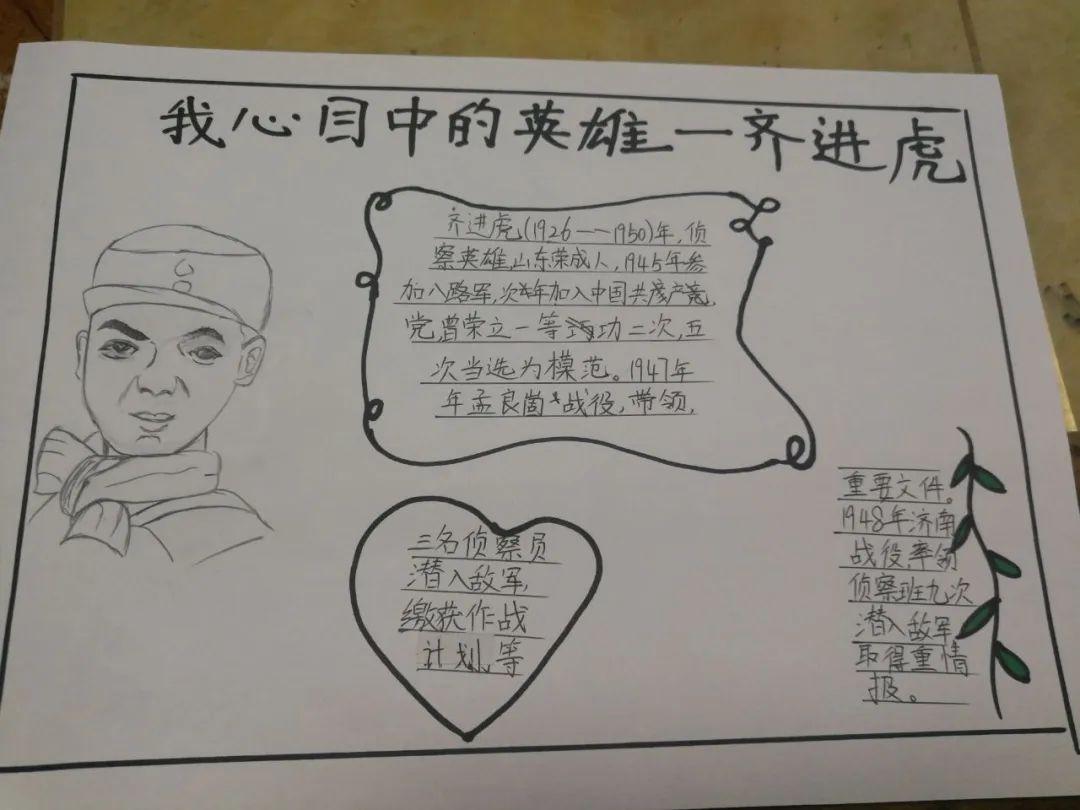 我心目中的英雄一齐进虎
齐进虎(1926——1950)年,侦
察英雄,山东荣成人,1945年参
加八路军,次年加入中国共产党,
党曾荣立一等功二次,五
次当选为模范。1947年
年孟良崮战役,带领,
三名侦察员
潜入敌军,
缴获作战
计划等
重要文件。
1948年济南
战役,率领
侦察班九次
潜入敌军,
取得重情
报。